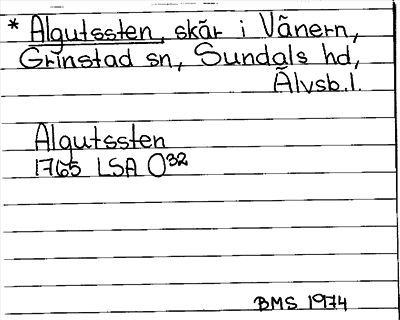 * Algutssten, skär i Vänern,
Grinstad sn, Sundals hd,
Älvsb. l.
Algutssten
1765 LSA O32
BMS 1974